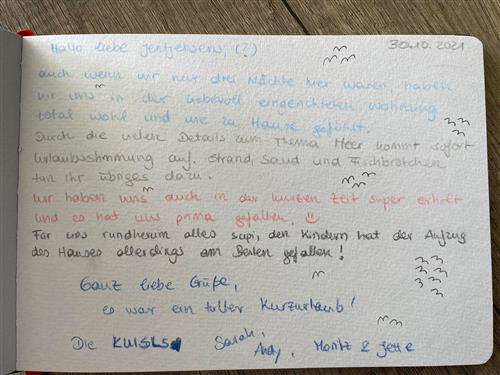 30.10.2021
Hallo liebe Jentjehsens, (?)
auch wenn wir nur drei Nächte hier waren, haben
wir uns in der liebevoll eingerichteten Wohnung
total wohl und wie zu Hause gefühlt.
Durch die vielen Details zum Thema Meer kommt sofort
Urlaubsstimmung auf. Strand, Sand und Fischbrötchen
tun ihr übriges dazu.
Wir haben uns auch in der kurzen Zeit super erholt
und es hat uns prima gefallen. ☺
Für uns rundherum alles supi, den Kindern hat der Aufzug
des Hauses allerdings am Besten gefallen!
Ganz liebe Grüße,
es war ein toller Kurzurlaub!
Die Sarah, Andy, Moritz & Jette